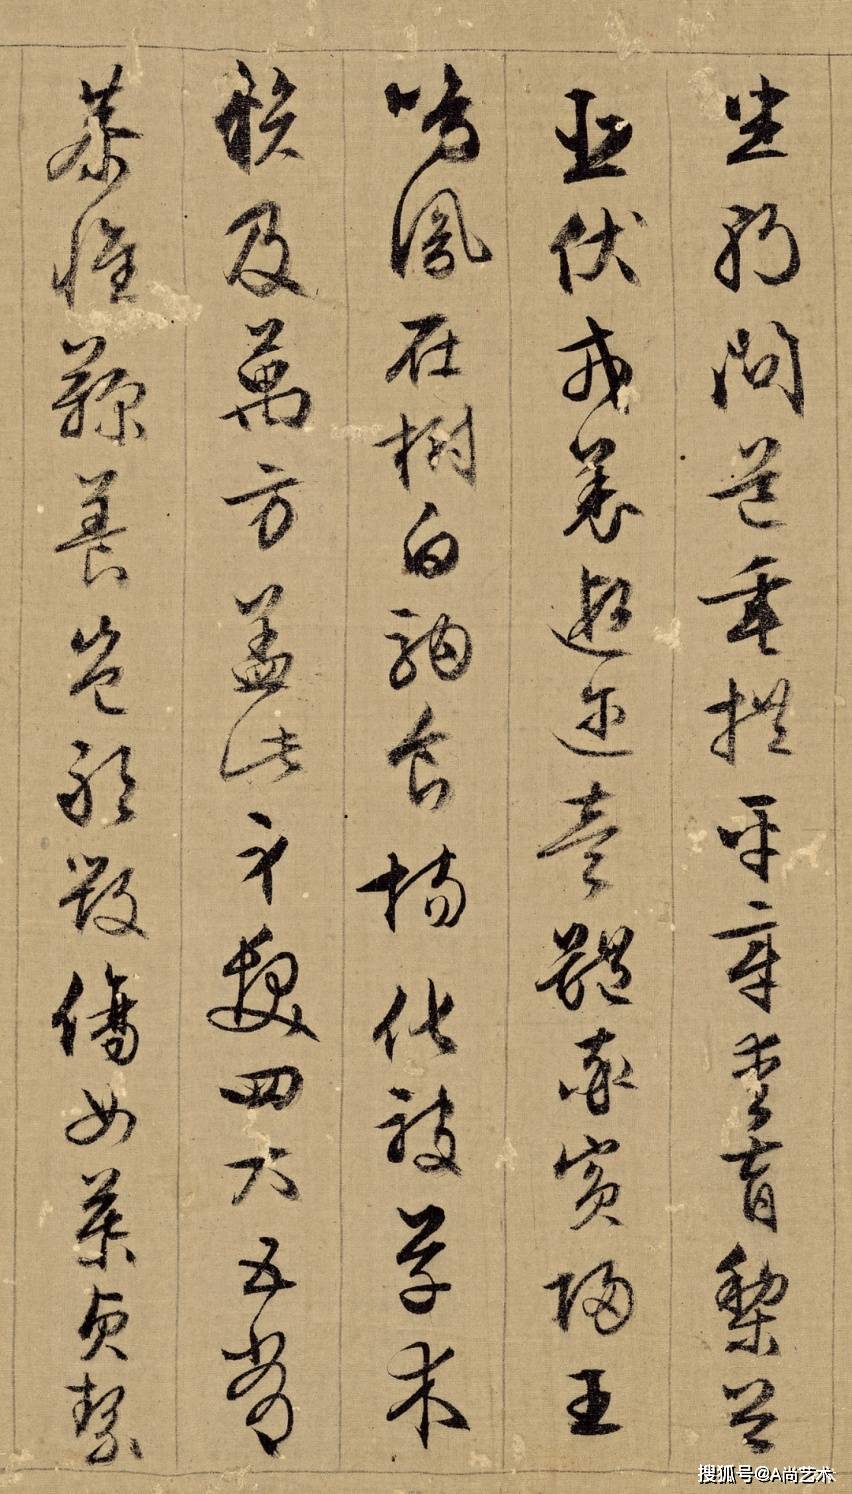 坐朝問道垂拱平章愛育黎首
臣伏戎羌遐迩壹體率賓歸王
鳴鳳在樹白駒食場化被草木
賴及萬方盖此身髮四大五常
恭惟鞠養豈敢毀傷女慕貞絜
搜狐号@A尚艺术